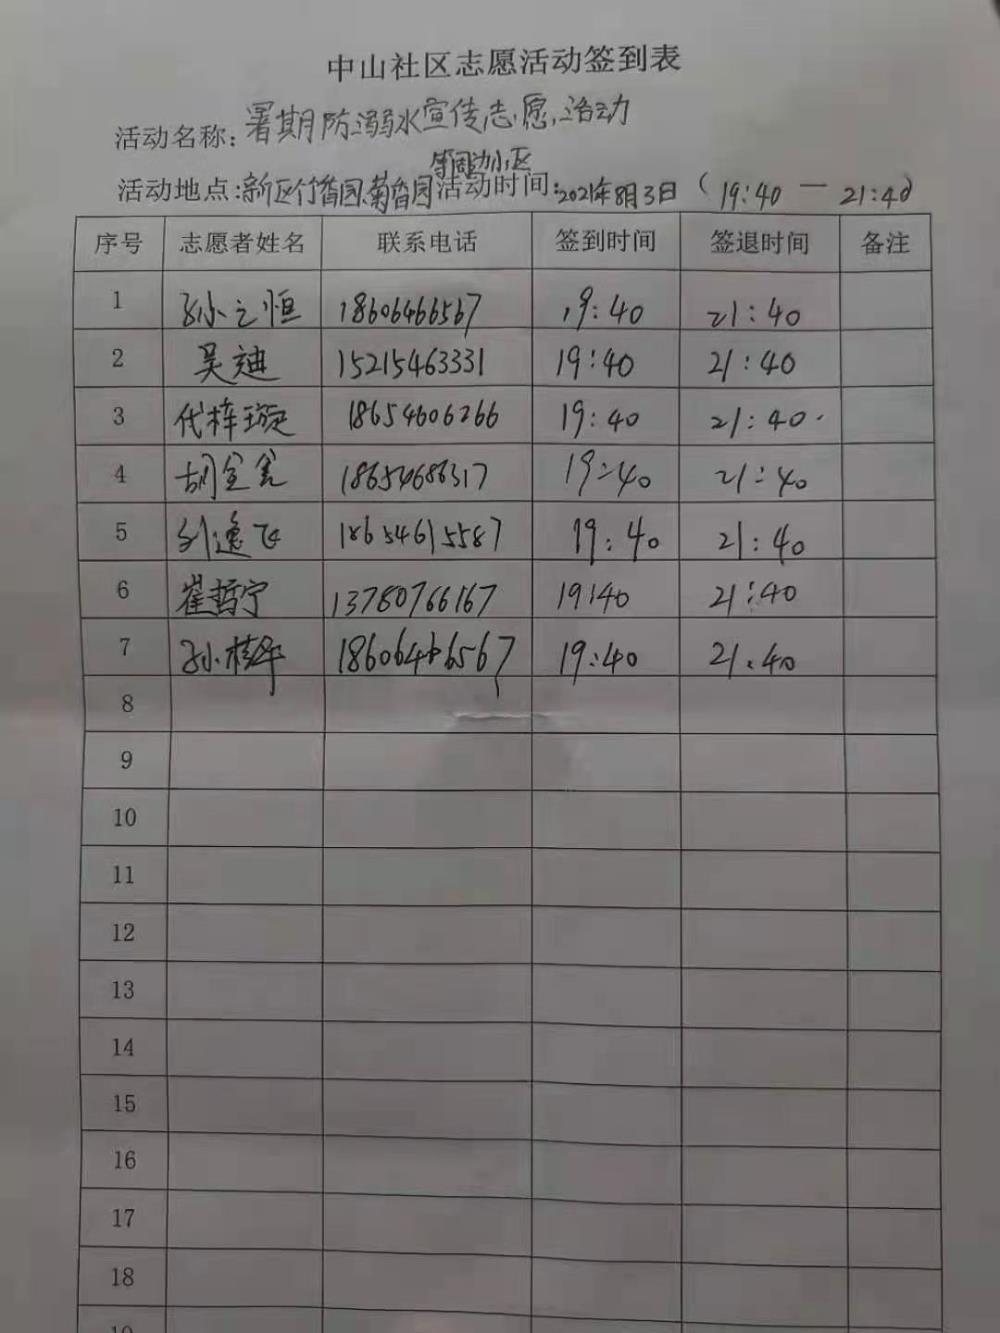 中山社区志愿活动签到表
活动名称:暑期防溺水宣传志愿活动
等周边小区
活动地点:新区竹香园.菊香园活动时间:2021年8月3日(19:40—21:40)
序号 志愿者姓名 联系电话 签到时间 签退时间 备注
1 孙之恒 18606466567 19:40 21:40
2 吴迪 15215463331 19:40 21:40
3 代梓璇 18654606266 19:40 21:40.
4 胡 18654686317 19:40 21:40
5 刘逸飞 18654615587 19:40 21:40
6 崔哲宁 13780766167 19:40 21:40
7 孙桂华 18606466567 19:40 21.40
8
9
10
11
12
13
14
15
16
17
18